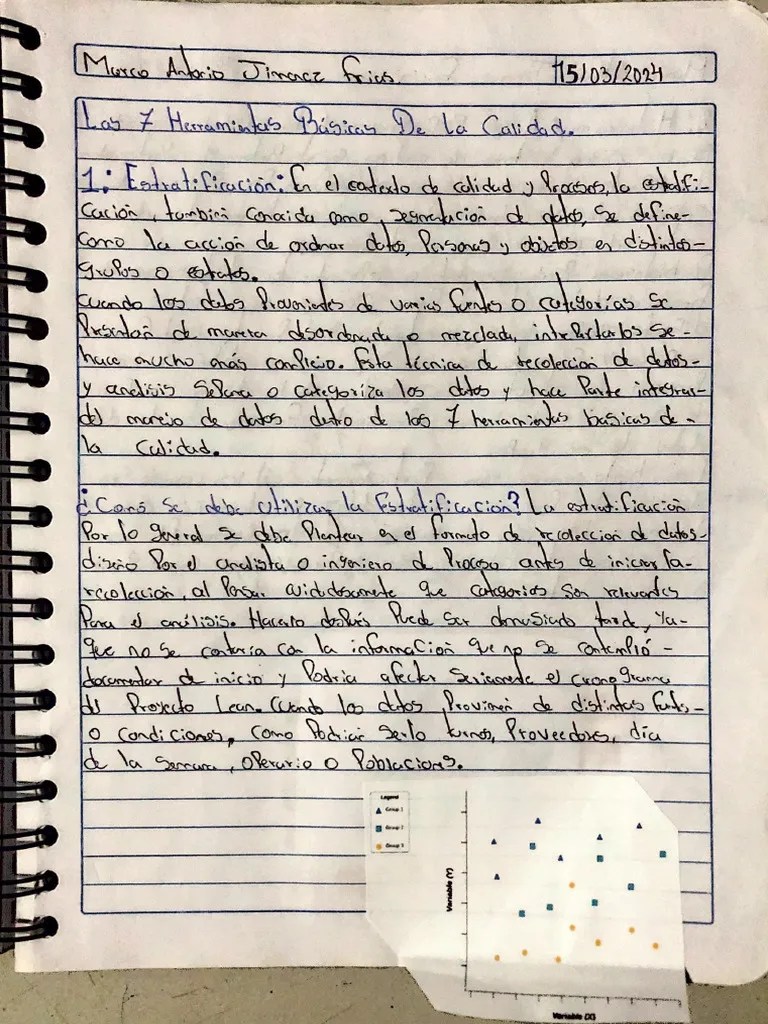 Marco Antonio Jimenez Frias 15/03/2024
Las 7 Herramientas Básicas De La Calidad.
1: Estratificación: En el contexto de calidad y Procesos, la estratifi-
cación, también conocida como, segmentación de datos, se define-
como la acción de ordenar datos, Personas y objetos en distintos-
grupos o estratos.
Cuando los datos Provenientes de varias fuentes o categorías se
Presentan de manera desordenada o mezclada, interpretarlos se-
hace mucho más complejo. Esta técnica de recolección de datos-
y analisis separa o categoriza los datos y hace Parte integral-
del manejo de datos dentro de las 7 herramientas basicas de-
la Calidad.
¿Como se debe utilizar la Estratificación? La estratificación
Por lo general se debe Plantear en el formato de recolección de datos-
diseño Por el analista o ingeniero de Proceso antes de iniciar la-
recolección, al Pensar cuidadosamente que categorias son relevantes
Para el análisis. Hacerlo después Puede ser demasiado tarde, Ya-
que no se contaria con la información que no se contempló-
documentar de inicio y Podria afectar seriamente el cronograma
del Proyecto Lean. Cuando los datos Provienen de distintas fuentes-
o condiciones, como Podrian serlo turnos, Proveedores, día
de la semana, operario o Poblaciones.
Legend
Group 1
Group 2
Group 3
Variable (Y)
Variable (X)